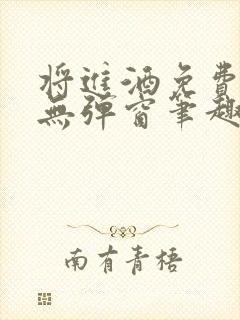 将進酒免費
無彈窗筆趣
南有青梧